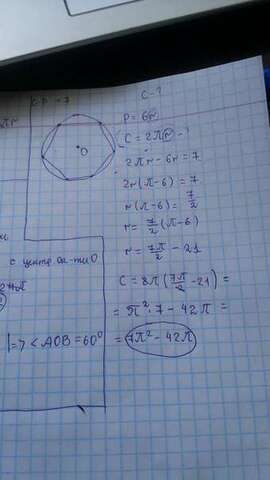 C-P=7
C-?
P=6r
πr
C=2πr-?
O
2πr-6r=7
2r(π-6)=7
r(π-6)=7/2
r=7/2(π-6)
r=7π/2-21
с центр
C=2π(7π/2-21)=
=π²·7-42π=
|=> <AOB=60°
=7π²-42π